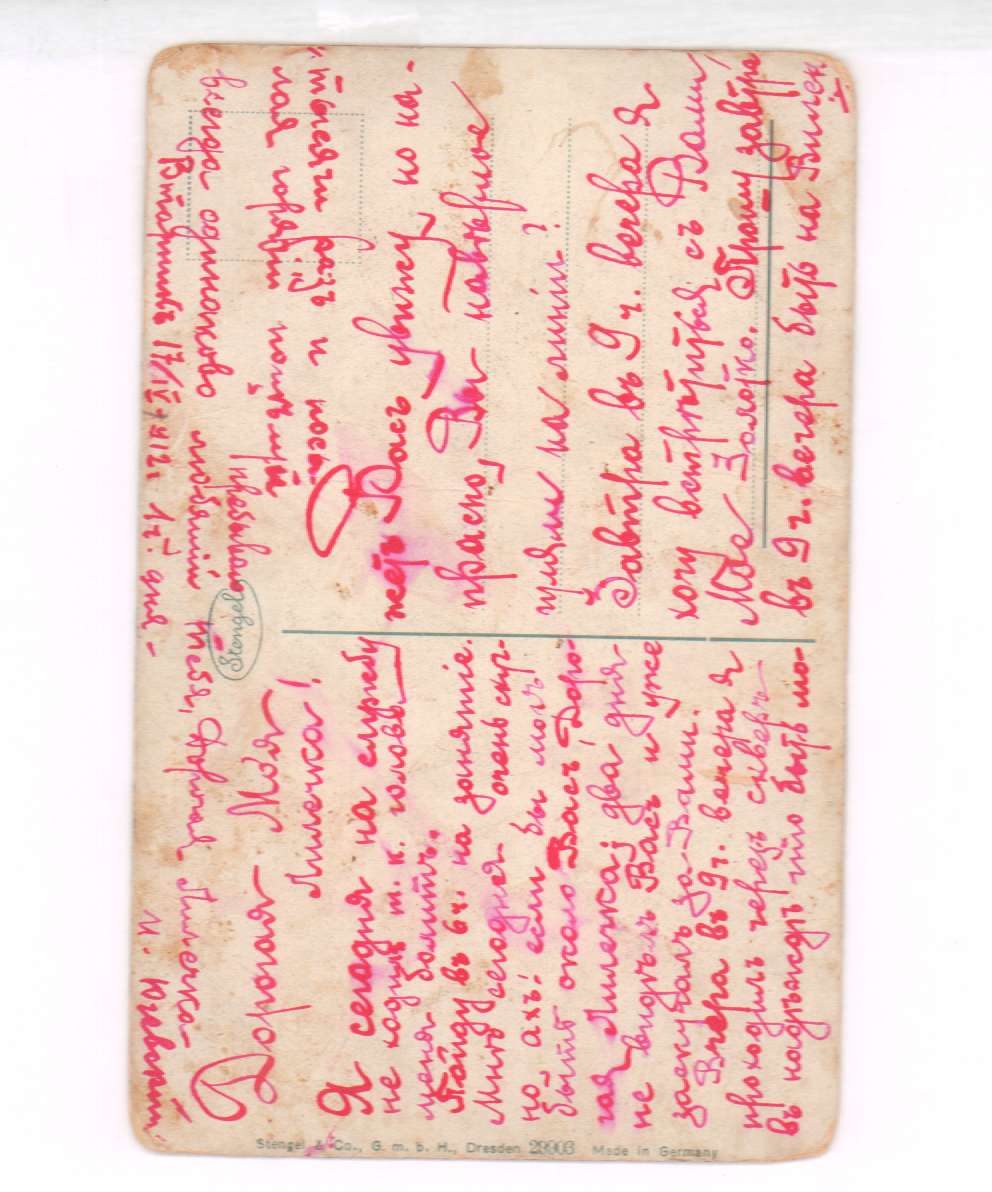 Дорогая Моя
Лилечка!
Я сегодня на службу
не ходилъ т. к. голова
меня болитъ.
Пойду въ 6 ч. на занятіе.
Мнѣ сегодня очень скуч-
но ахъ! если бы могъ
быть около Васъ! Доро-
гая Лилечка; два дня
не видѣлъ Васъ и уже
заскучалъ за Вами.
Вчера въ 9 ч. вечера я
проходилъ черезъ скверъ
въ надѣждѣ что быть мо-
жетъ Васъ увижу, но на-
прасно, Вы навѣрное
гуляли на линіи?
Завтра въ 9 ч. вечера я
хочу встрѣтиться съ Вами,
Мое Золотко. Прошу завтра
въ 9 ч. вечера быть на Вилен.
тысячи разъ и
пребываю
всегда одинаково любящій тебя, Дорогая Лилечка
Витебскъ 17/IV 1912 г. 1 ч. дня
Stengel
Stengel & Co., G. m. b. H., Dresden 29903 Made in Germany